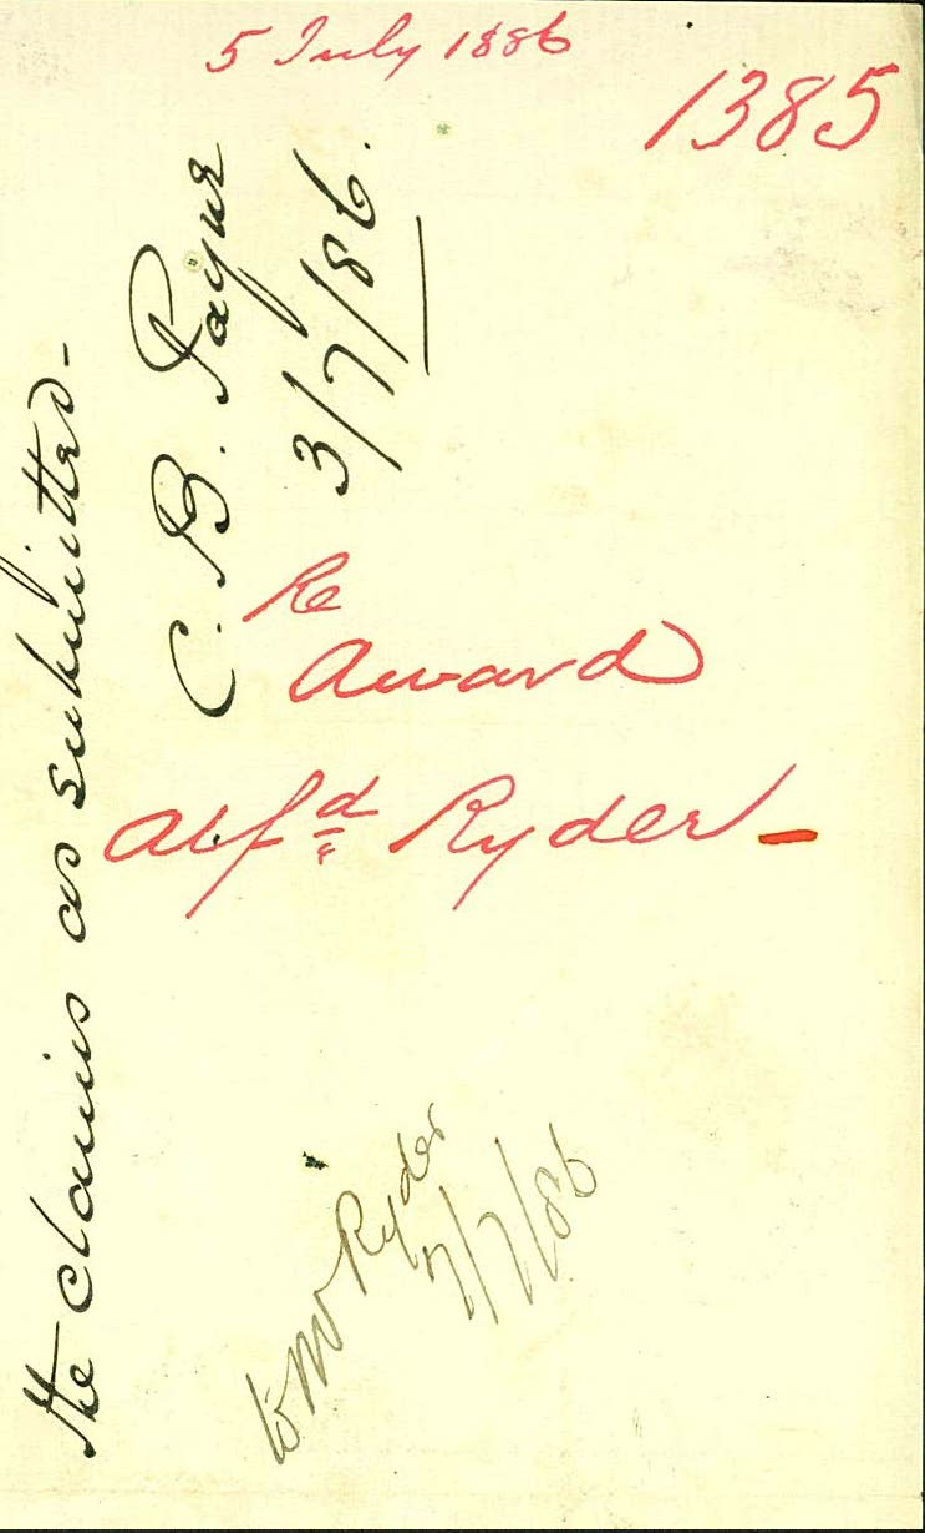 5 July 1886
1385
the claims as submitted -
C. B. Payne
3/7/86.
Re
Award
Alfd Ryder -
to Mr Ryder
7/7/86